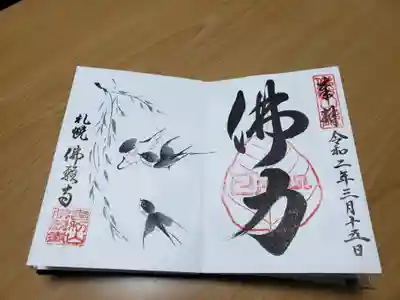 奉拝
令和二年三月十五日
佛力
札幌
佛願寺